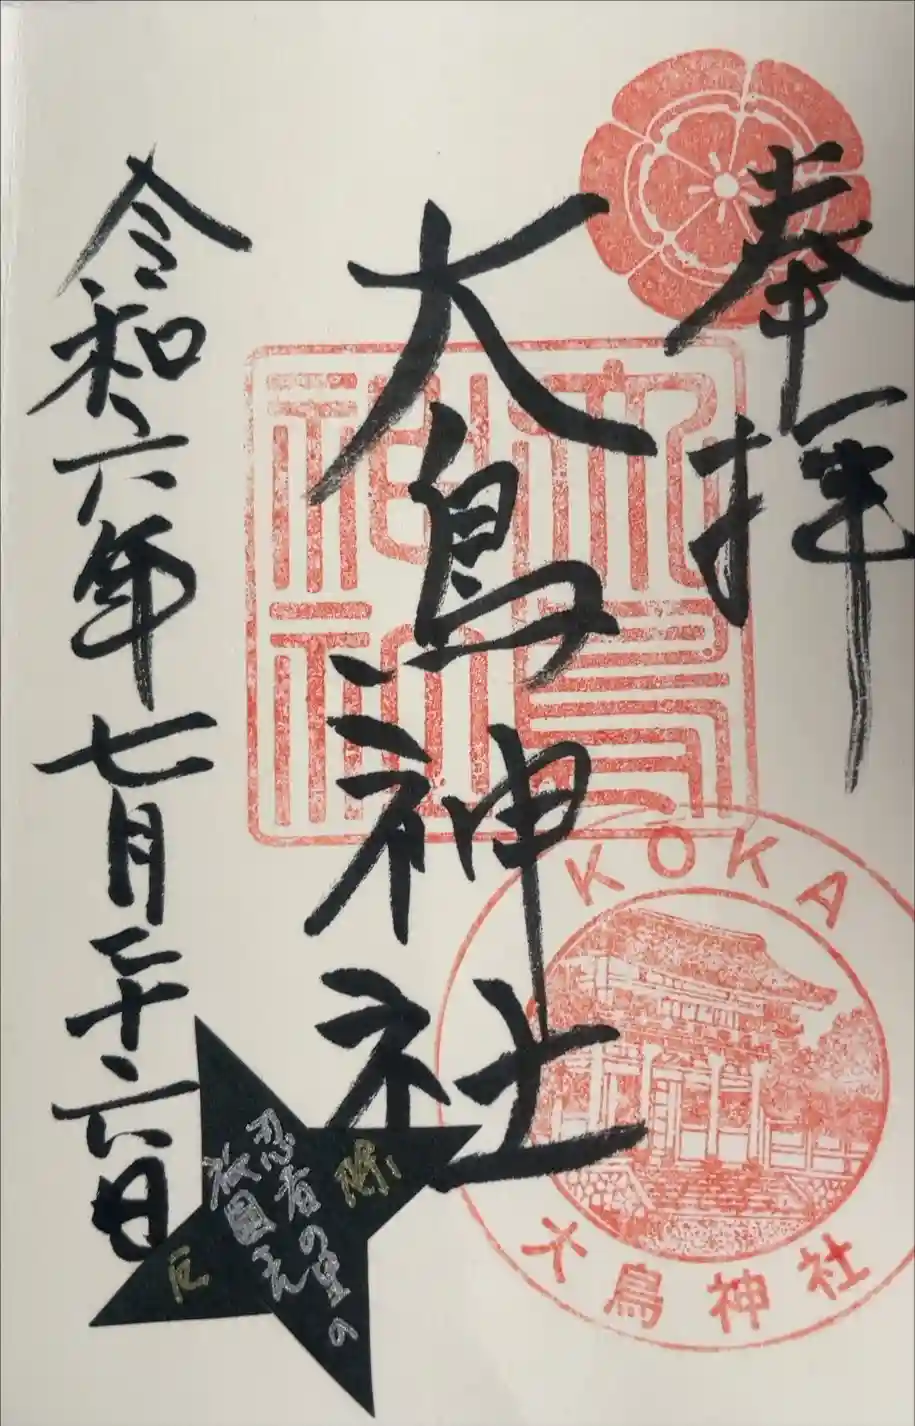 奉拝
大鳥神社
大鳥
神社
令和六年七月二十六日
KOKA
大鳥神社
忍者の里の
祇園さん
厄除